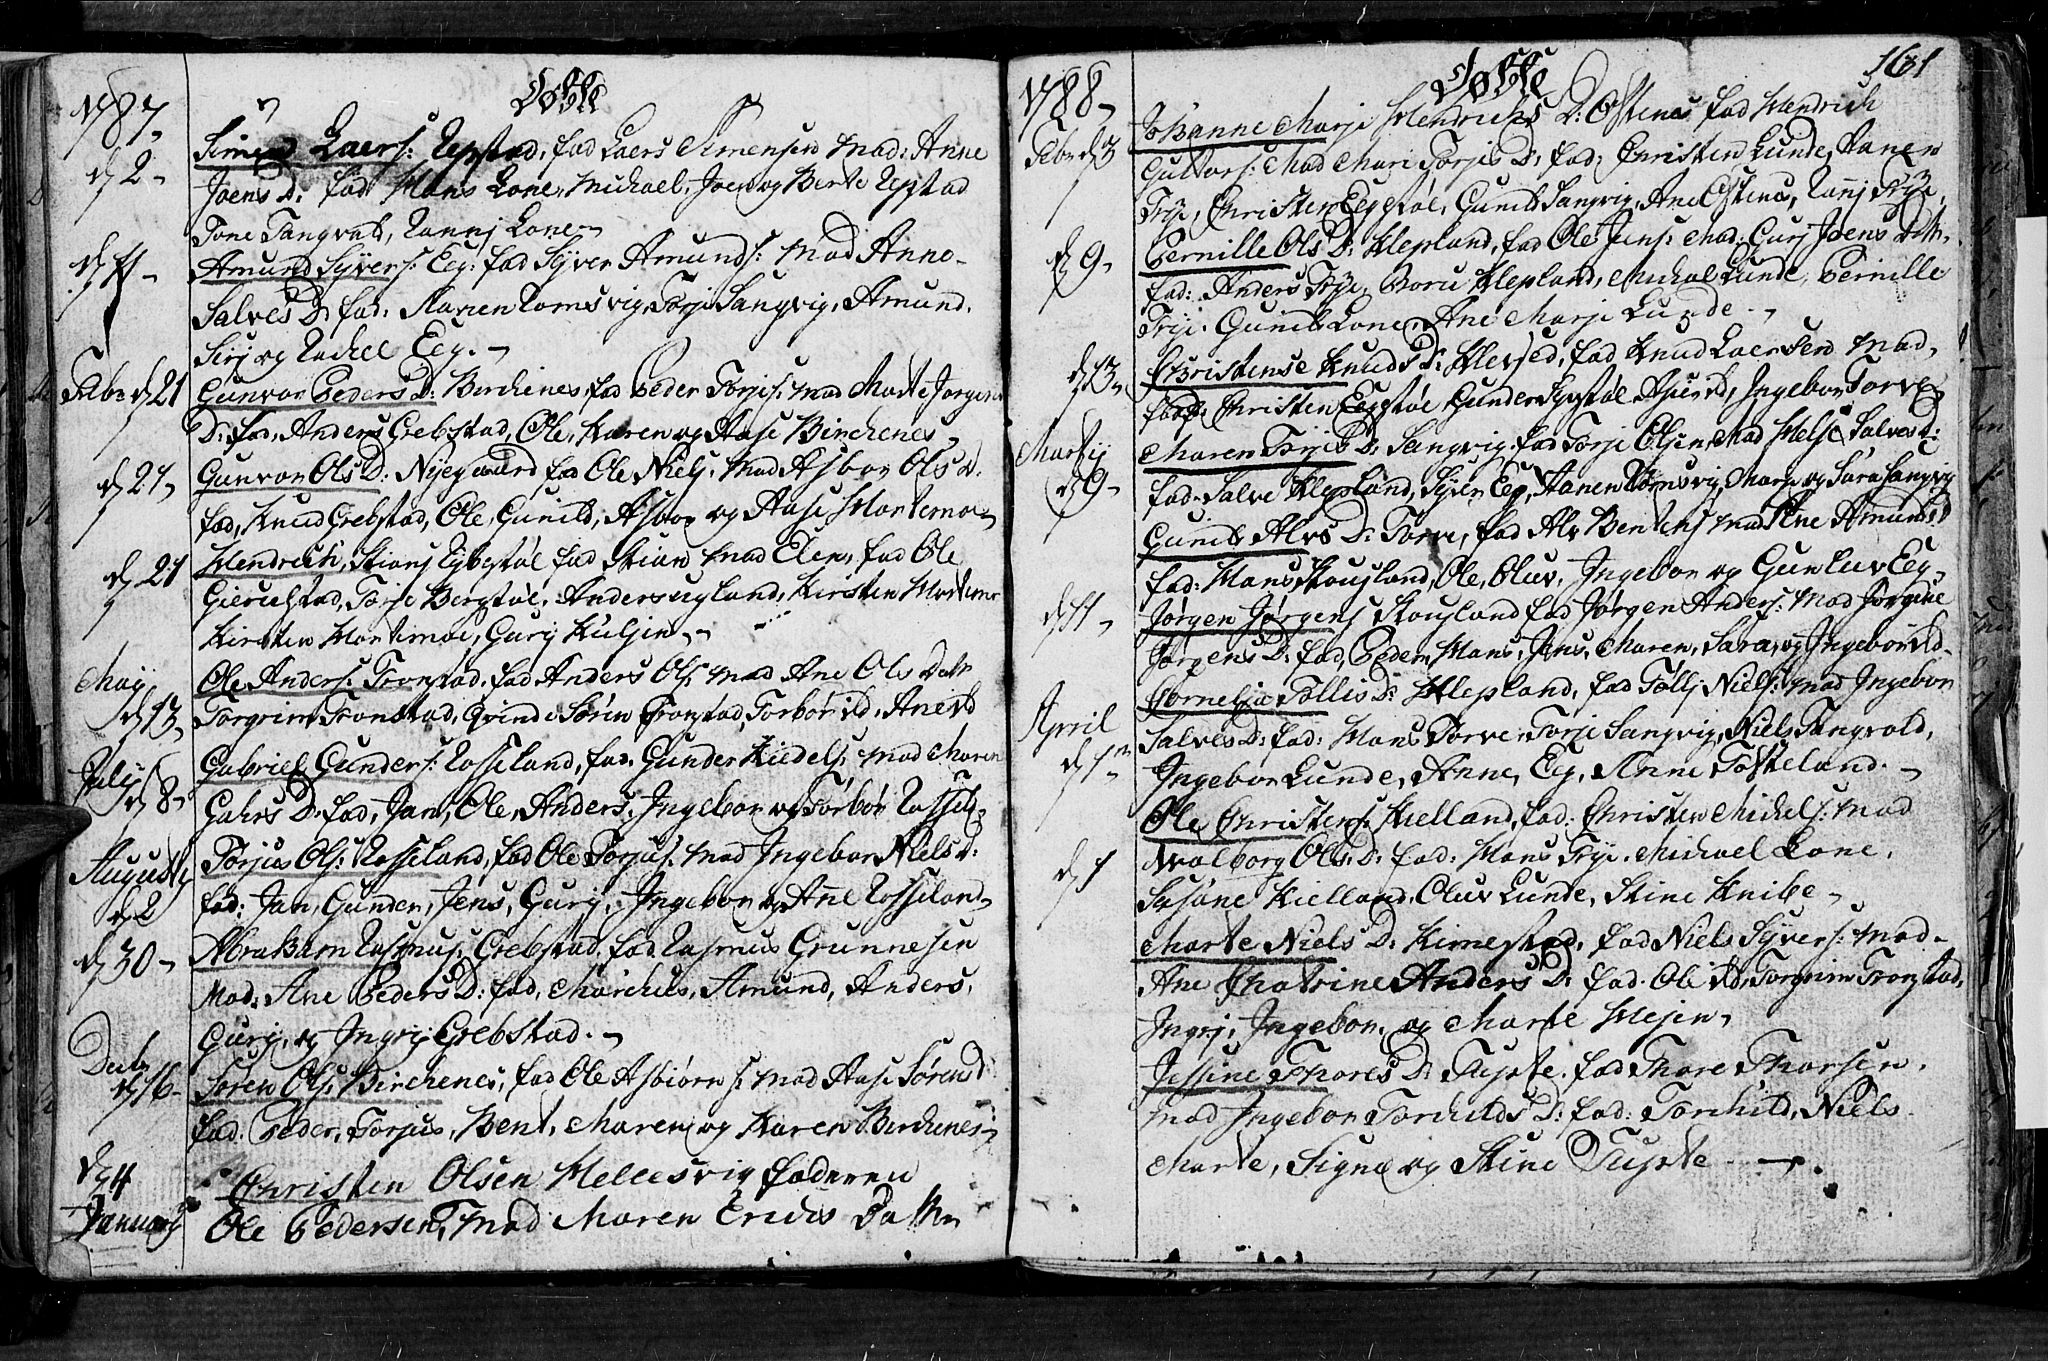 1787
Døbte
d 2
Simen Laers: Repstad, fad Laers Simensen Mad: Anne
Joens D: fad Hans Lone, Michael, Joen og Berte Repstad
Tone Tangvald, Ranni Lone
d 11
Amund Syvers: Eeg: fad Syver Amunds: Mad Anne
Salves D: fad: Aanen Romsvig, Torje Sangvig, Amund,
Siri og Rachel Eeg.
Febr d 21
Gunvor Peders D: Birchenes, fad Peder Torjes: Mad Marte Jorgens
D: fad, Anders Grebstad, Ole, Karen og Aase Birchenes
d 21
Gunvor Ols D: Nyegaard fad Ole Niels: Mad Asbor Ols D:
fad, Knud Grebstad, Ole, Gunild, Asbor og Aase Mortemoe
d 21
Hendrich, Stians fad Stian Mad Elen, fad Ole
Gierulstad, Torje Bergstøl, Anders ugland, Kirsten Mortemoe
Kirsten Mortemoe, Gurj Kuljen
Maij d 13
Ole Anders: Tronstad, fad Anders Ols: Mad Ane Ols Datr
Torgrim Tronstad, Søren Tronstad, Torbor ibd, Ane ibd
Julij d 8
Gabriel Gunders: Rosseland, fad. Gunder Kiedels: Mad Maren
Gahrs D: fad, Jan, Ole, Anders, Ingebor og Torbor Rosseld
Augusty d 2
Torjus Ols: Rosseland, fad Ole Torjus: Mad Ingebor Niels D:
fad: Jan, Gunder, Jens, Gurj, Ingebor og Ane Rosseland
d 30
Abraham Rasmus: Grebstad, fad. Rasmus Grunnesen
Mad: Ane Peders D: fad, Marchus, Amund, Anders,
Gurj, og Ingrj Grebstad.
Decb d 16
Søren Ols: Birchenes, fad Ole Asbiørns: Mad Aase Sørens D:
fad. Peder, Torjus, Bent, Maren og Karen Birchenes
d 4 January
Christen Olsen Hellesvig faderen
Ole Pedersen, Mad Maren Erichs Datter
1788
Døbte
161
Febr d 3
Johanne Marje Hendrichs D: Østenes fad Hendrich
Guttors: Mad Mari Torjes D: fad: Christen Lunde, Aanen
Trye, Christen Eegstøl, Gunild Sangvig, Ane Østenes, Ranj Trye,
d 9
Pernille Ols D: Klepland, fad Ole Jens: Mad: Gurj Joens Datr.
fad: Anders Trye, Boru Klepland, Michal Lunde, Pernille
Trye. Gunild Lone, Ane Marje Lunde
d 13
Christense Knuds D: Klevsed, fad Knud Laersen Mad,
fad: Christen Eegstøl, Gunder Eegstøl, Siurd, Ingebor Torve
Martij d 9
Maren Torjes D: Sangvig, fad Torje Olsen Mad Helje Salves D:
fad. Salve Klepland, Syver Eeg, Aanen Romsvig, Marje og Sara Sangvig
Gunild Alvs D: Torve, fad Alv Bentens Mad Ane Amunds D
fad: Hans Skousland, Ole, Oluv, Ingebor og Gunluv Eeg
d 11
Jørgen Jørgens Skousland fad Jørgen Anders: Mad Jørgine
Jørgens D: fad, Peder, Hans, Jens, Maren, Sara, og Ingebor ibd
April d 1
Cornelia Tollis D: Klepland, fad Tollj Niels: Mad Ingebor
Salves D: fad: Hans Torve, Torje Sangvig, Niels Tangvald,
Ingebor Lunde, Anne Eeg, Anne Toskeland.
d 1
Ole Christens: Kielland, fad: Christen Michels: Mad
Walborg Ols: D: fad: Hans Trye. Michael Lone,
Susane Kielland, Oluv Lunde, Stine Knibe
Marte Niels D: Kimestad, fad Niels Syvers: Mad
Ane Chatrine Anders D: fad. Ole ibd, Torgrim Tronstad,
Ingrj, Ingebor, og Marte Hejen
Jessine Thores D: Tupte. fad Thore Thorsen.
Mad Ingebor Torchilds D: fad: Torchild, Niels
Marte, Signe og Stine Tupte